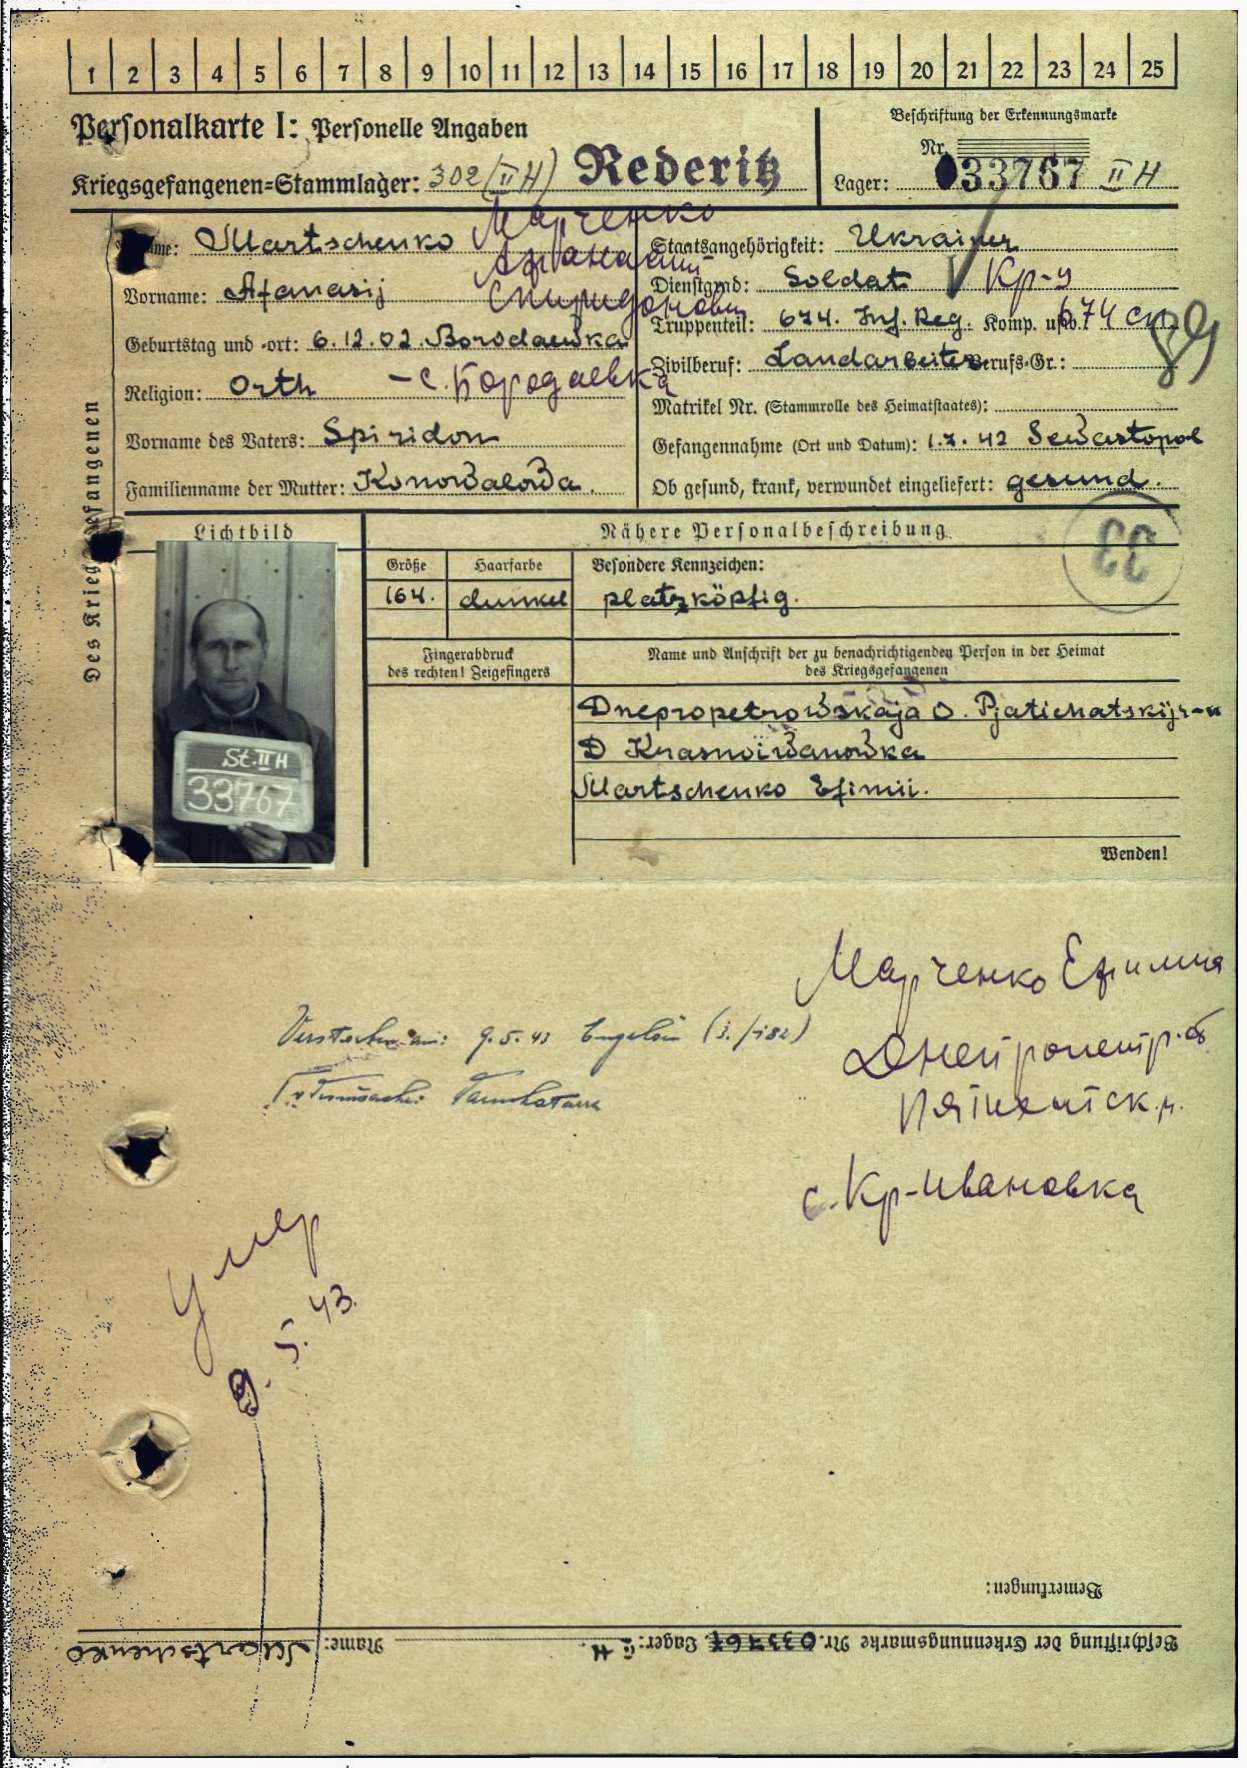 1 2 3 4 5 6 7 8 9 10 11 12 13 14 15 16 17 18 19 20 21 22 23 24 25
Personalkarte I: Personelle Angaben
Kriegsgefangenen-Stammlager: 302 (II H) Rederitz
Beschriftung der Erkennungsmarke
Nr. 033767
Lager: II H
Des Kriegsgefangenen
Name: Martschenko Марченко
Vorname: Afanasij Афанасий
Спиридонович
Geburtstag und -ort: 6.12.02. Borodaewka
Religion: Orth - с. Бородаевка
Vorname des Vaters: Spiridon
Familienname der Mutter: Konowalowa.
Staatsangehörigkeit: Ukrainer
Dienstgrad: Soldat Кр-ц
Truppenteil: 674. Inf. Reg. Komp. usw. 674 сп
Zivilberuf: Landarbeiter Berufs-Gr.:
Matrikel Nr. (Stammrolle des Heimatstaates):
Gefangennahme (Ort und Datum): 1.7.42 Sewastopol
Ob gesund, krank, verwundet eingeliefert: gesund.
Lichtbild
St. II H
33767
Nähere Personalbeschreibung
33
Größe Haarfarbe Besondere Kennzeichen:
164. dunkel platzköpfig.
Fingerabdruck
des rechten! Zeigefingers
Name und Anschrift der zu benachrichtigenden Person in der Heimat
des Kriegsgefangenen
Dnepropetrowskaja O. Pjatichatskij r-n
D Krasnoiwanowka
Martschenko Efimii.
Wenden!
Марченко Ефимия
Днепропетр. об
Пятихатск. р.
с. Кр-Ивановка
Verstorben am: 9.5.43
Умер
9.5.43.
Bemerkungen:
Beschriftung der Erkennungsmarke Nr. 033767 Lager: II H. Name: Martschenko